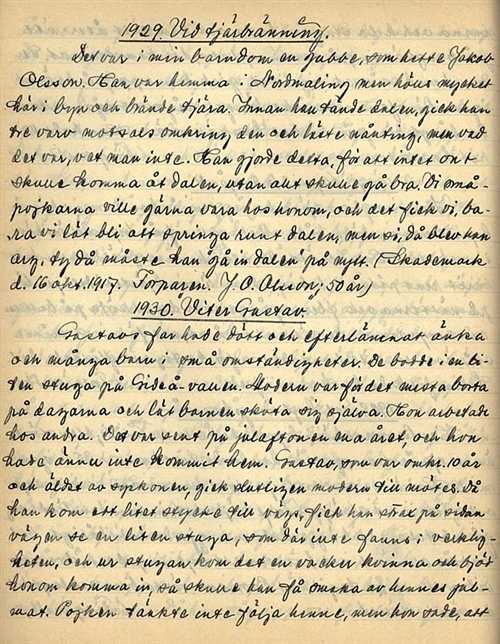 1929. Vid tjärbränning.
Det var i min barndom en gubbe, som hette Jakob
Olsson. Han var hemma i Nordmaling men hölls mycket
här i byn och brände tjära. Innan han tände dalen, gick han
tre varv motsols omkring den och läste nånting, men vad
det var, vet man inte. Han gjorde detta, för att intet ont
skulle komma åt dalen, utan allt skulle gå bra. Vi små-
pojkarna ville gärna vara hos honom, och det fick vi, ba-
ra vi lät bli att springa runt dalen, men si, då blev han
arg, ty då måste han "gå in dalen" på nytt. (Skademark
d. 16 okt. 1917. Torparen J. O. Olsson, 50 år)
1930. Viter Gustav.
Gustavs far hade dött och efterlämnat änka
och många barn i små omständigheter. De bodde i en li-
ten stuga på Gideå-vallen. Modern var för det mesta borta
på dagarna och lät barnen sköta sig själva. Hon arbetade
hos andra. Det var sent på julaftonen ena året, och hon
hade ännu inte kommit hem. Gustav, som var omkr. 10 år
och äldst av syskonen, gick slutligen modern till mötes. Då
han kom ett litet stycke till vägs, fick han strax på sidan
vägen se en liten stuga, som där inte fanns i verklig-
heten, och ur stugan kom det en vacker kvinna och bjöd
honom komma in, så skulle han få smaka av hennes jul-
mat. Pojken tänkte inte följa henne, men hon sade, att